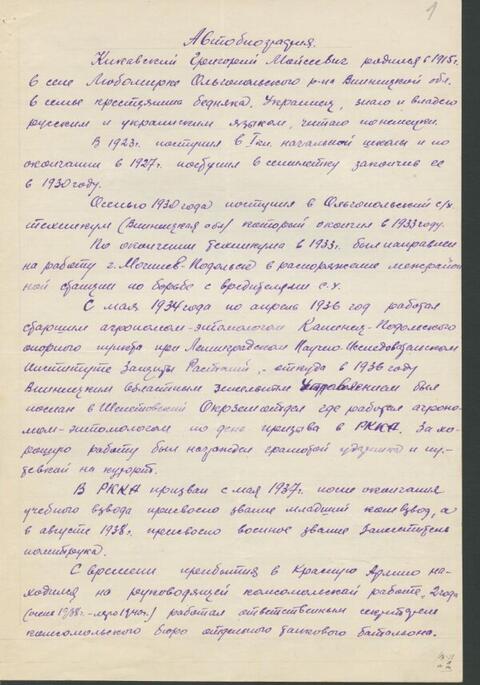 1
Автобиография.
Кижавский Григорий Мойсеевич родился в 1915 г.
в селе Любомирке Ольгопольского р-на Винницкой обл.
в семье крестьянина бедняка, Украинец, знаю и владею
русским и украинским языком, читаю по немецки.
В 1923 г. поступил в I кл. начальной школы и по
окончании в 1927 г. поступил в семилетку закончив ее
в 1930 году.
Осенью 1930 года поступил в Ольгопольский с/х
техникум (Винницкая обл) который окончил в 1933 году.
По окончании техникума в 1933 г. был направлен
на работу г. Могилев-Подольск в распоряжение межрайон
ной станции по борьбе с вредителями с.х.
С мая 1934 года по апрель 1936 год работал
старшим агрономом-энтомологом Каменец-Подольского
опорного пункта при Ленинградском Научно-Исследовательском
Институте Защиты Растений, откуда в 1936 году
Винницким Областным земельным Управлением был
послан в Шепетовский Окрземотдел где работал агроно-
мом-энтомологом по день призыва в РККА. За хо-
рошую работу был награжден грамотой ударника и пу-
тевкой на курорт.
В РККА призван с мая 1937 г. после окончания
учебного взвода присвоено звание младший комвзвод, а
в августе 1938 г. присвоено военное звание Заместитель
политрука.
С времени прибытия в Красную Армию на-
ходился на руководящей комсомольской работе, 2 года
(1938 г. - 1940 г.) работал ответственным секретарем
комсомольского бюро отдельного танкового батальона.